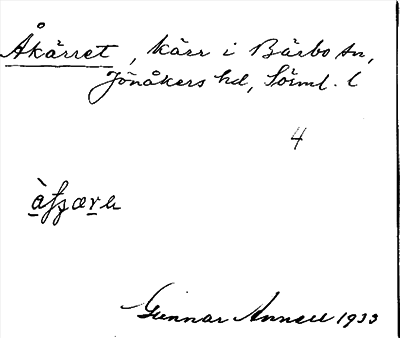 Åkärret, kärr i Bärbo sn,
Jönåkers hd, Söml. l
4
Gunnar Annell 1933